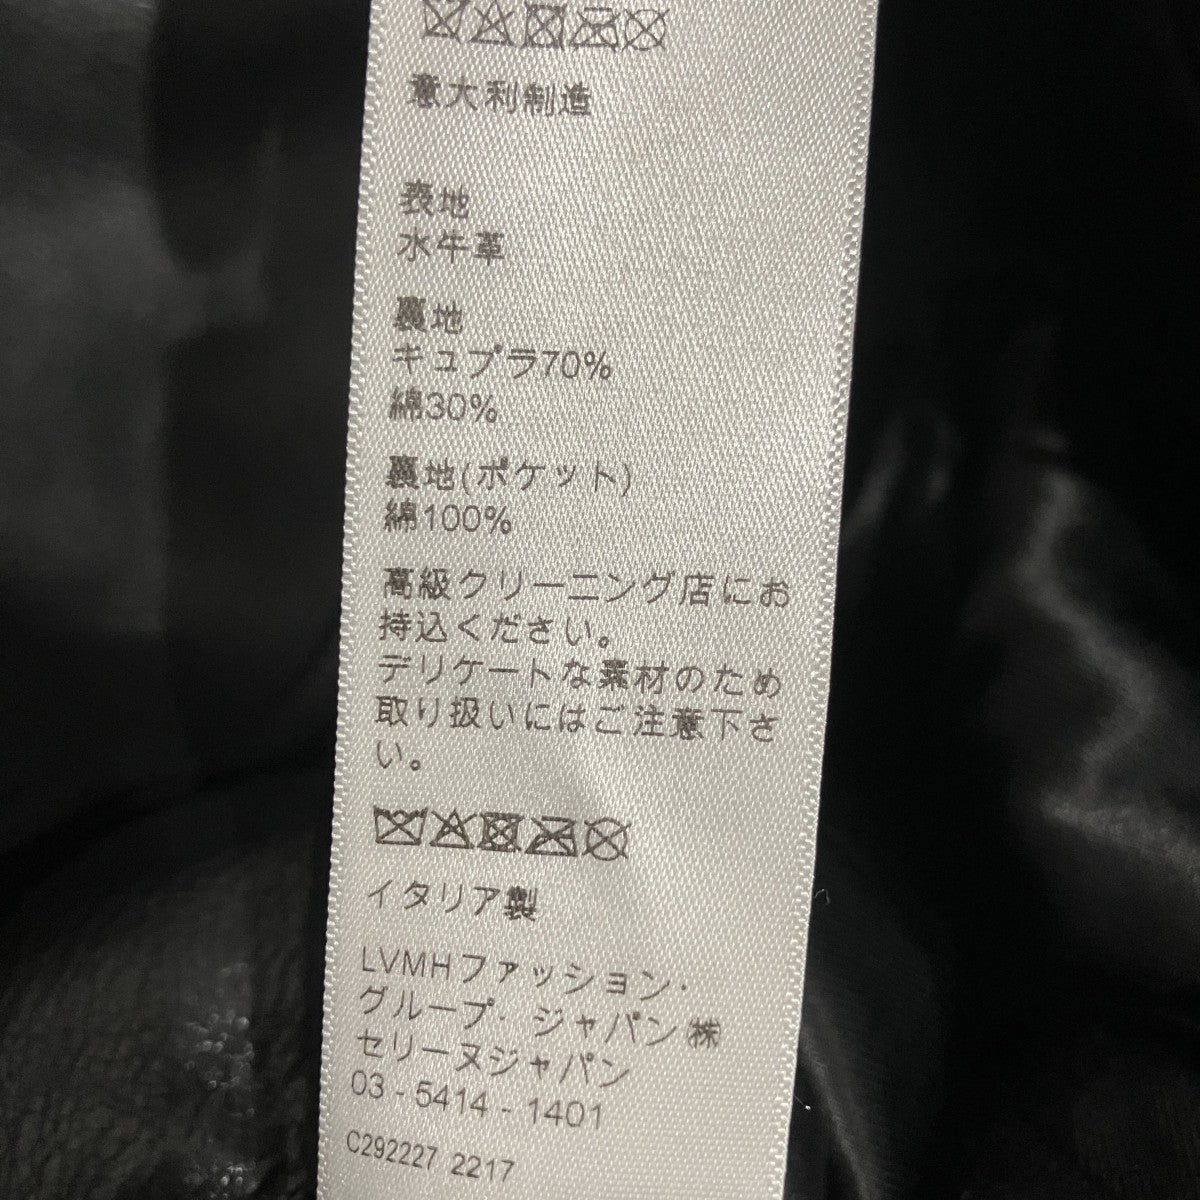 意大利制造
表地
水牛革
裏地
キュプラ70%
綿30%
裏地(ポケット)
綿100%
高級クリーニング店にお
持込ください。
デリケートな素材のため
取り扱いにはご注意下さ
い。
イタリア製
LVMHファッション・
グループ・ジャパン㈱
セリーヌジャパン
03 - 5414 - 1401
C292227 2217